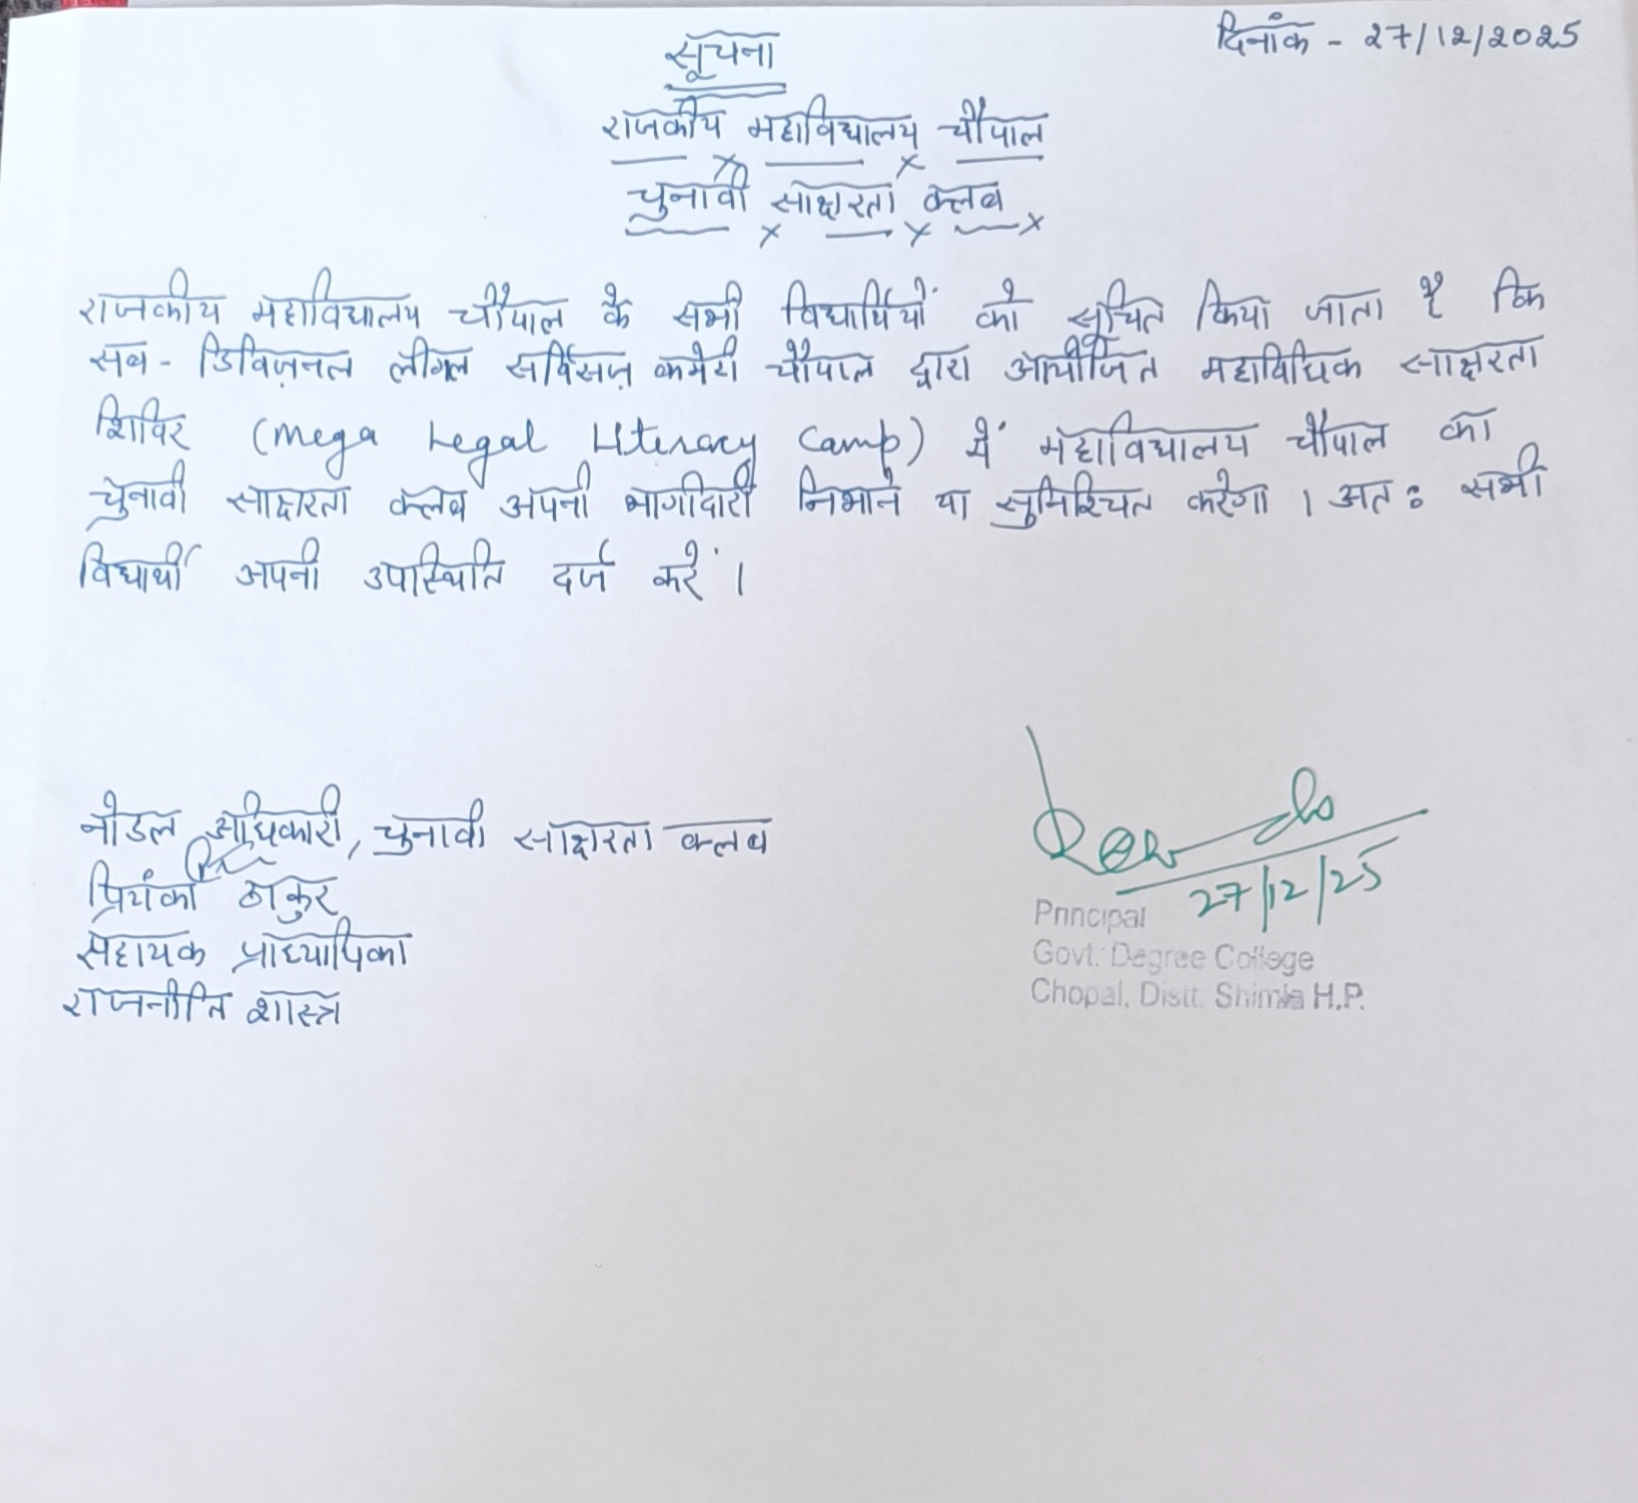 दिनांक - 27/12/2025
सूचना
राजकीय महाविद्यालय चौपाल
चुनावी साक्षरता क्लब
राजकीय महाविद्यालय चौपाल के सभी विद्यार्थियों को सूचित किया जाता है कि
सब - डिविज़नल लीगल सर्विसज़ कमेटी चौपाल द्वारा आयोजित महाविधिक साक्षरता
शिविर (Mega Legal Literacy Camp) में महाविद्यालय चौपाल का
चुनावी साक्षरता क्लब अपनी भागीदारी निभाने या सुनिश्चित करेगा । अत: सभी
विद्यार्थी अपनी उपस्थिति दर्ज करें ।
नोडल अधिकारी, चुनावी साक्षरता क्लब
प्रियंका ठाकुर
सहायक प्राध्यापिका
राजनीति शास्त्र
27/12/25
Principal
Govt. Degree College
Chopal, Distt. Shimla H.P.